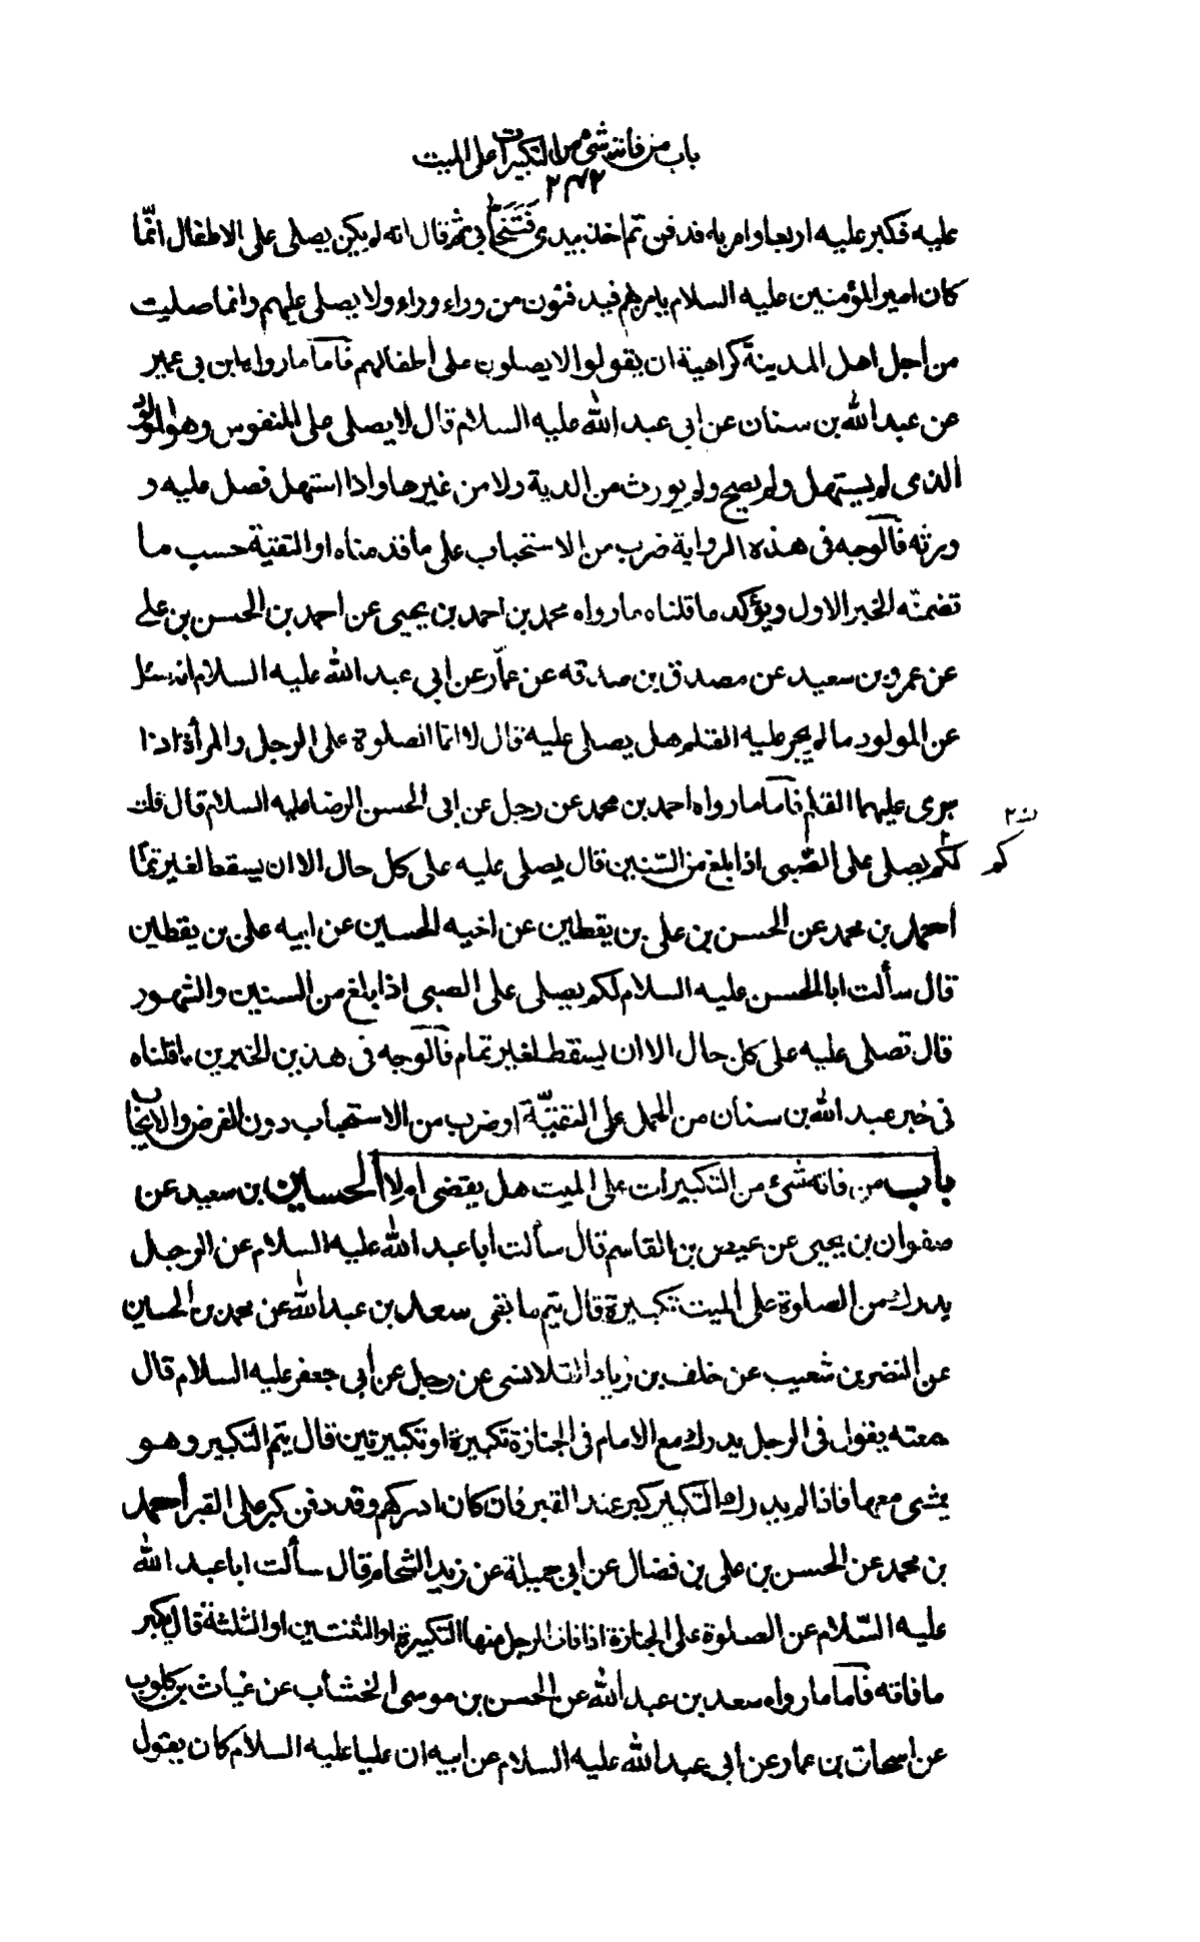 باب من فاته شئ من التكبيرات على الميت
٢٤٢
عليه فكبر عليه اربعا وامر به فدفن ثم اخذ بيدى فتنحّا بى ثم قال انه لم يكن يصلى على الاطفال انّما
كان امير المؤمنين عليه السلام يامر بهم فيدفنون من وراء وراء ولا يصلى عليهم وانما صليت
من اجل اهل المدينة كراهية ان يقولوا لا يصلون على اطفالهم فامّا ما رواه ابن بى عمير
عن عبد الله بن سنان عن ابي عبد الله عليه السلام قال لا يصلى على المنفوس وهو المولود
الذى لم يستهل ولم يصح ولم يورث من الدية ولا من غيرها واذا استهل فصل عليه و
ورثه فالوجه فى هذه الرواية ضرب من الاستحباب على ما قدمناه او التقيّة حسب ما
تضمنّه الخبر الاول ويؤكد ما قلناه ما رواه محمد بن احمد بن يحيى عن احمد بن الحسن بن على
عن عمرو بن سعيد عن مصدق بن صدقه عن عمّار عن ابي عبد الله عليه السلام انه سئل
عن المولود ما لم يجر عليه القلم هل يصلى عليه قال لا انما الصلوة على الرجل والمرأة اذا
جرى عليهما القلم فامّا ما رواه احمد بن محمد عن رجل عن ابى الحسن الرضا عليه السلام قال قلت
لكم يصلى على الصّبى اذا بلغ من السّنين قال يصلى عليه على كل حال الا ان يسقط لغير تمام
كم
احمد بن محمد عن الحسن بن على بن يقطين عن اخيه الحسين عن ابيه على بن يقطين
قال سألت ابا الحسن عليه السلام لكم يصلى على الصبى اذا بلغ من السنين والشهور
قال تصلى عليه على كل حال الا ان يسقط لغير تمام فالوجه فى هذين الخبرين ما قلناه
فى خبر عبد الله بن سنان من الحمل على التقيّة او ضرب من الاستحباب دون الفرض والايجاب
باب من فاته شئ من التكبيرات على الميت هل يقضى ام لا الحسين بن سعيد عن
صفوان بن يحيى عن عيص بن القاسم قال سألت ابا عبد الله عليه السلام عن الرجل
يدرك من الصلوة على الميت تكبيرة قال يتم ما بقى سعد بن عبد الله عن محمد بن الحسين
عن النضر بن شعيب عن خلف بن زياد القلانسى عن رجل عن ابى جعفر عليه السلام قال
سمعته يقول فى الرجل يدرك مع الامام فى الجنازة تكبيرة او تكبيرتين قال يتم التكبير وهو
يمشى معها فاذا لم يدرك التكبير كبر عند القبر فان كان ادركهم وقد دفن كبر على القبر احمد
بن محمد عن الحسن بن على بن فضال عن ابى جميلة عن زيد الشحام قال سألت ابا عبد الله
عليه السّلام عن الصلوة على الجنازة اذا فات الرجل منها التكبيرة او الثنتين او الثلثة قال يكبر
ما فاته فامّا ما رواه سعد بن عبد الله عن الحسن بن موسى الخشاب عن غياث بن كلوب
عن اسحاق بن عمار عن ابى عبد الله عليه السلام عن ابيه ان عليا عليه السلام كان يقول